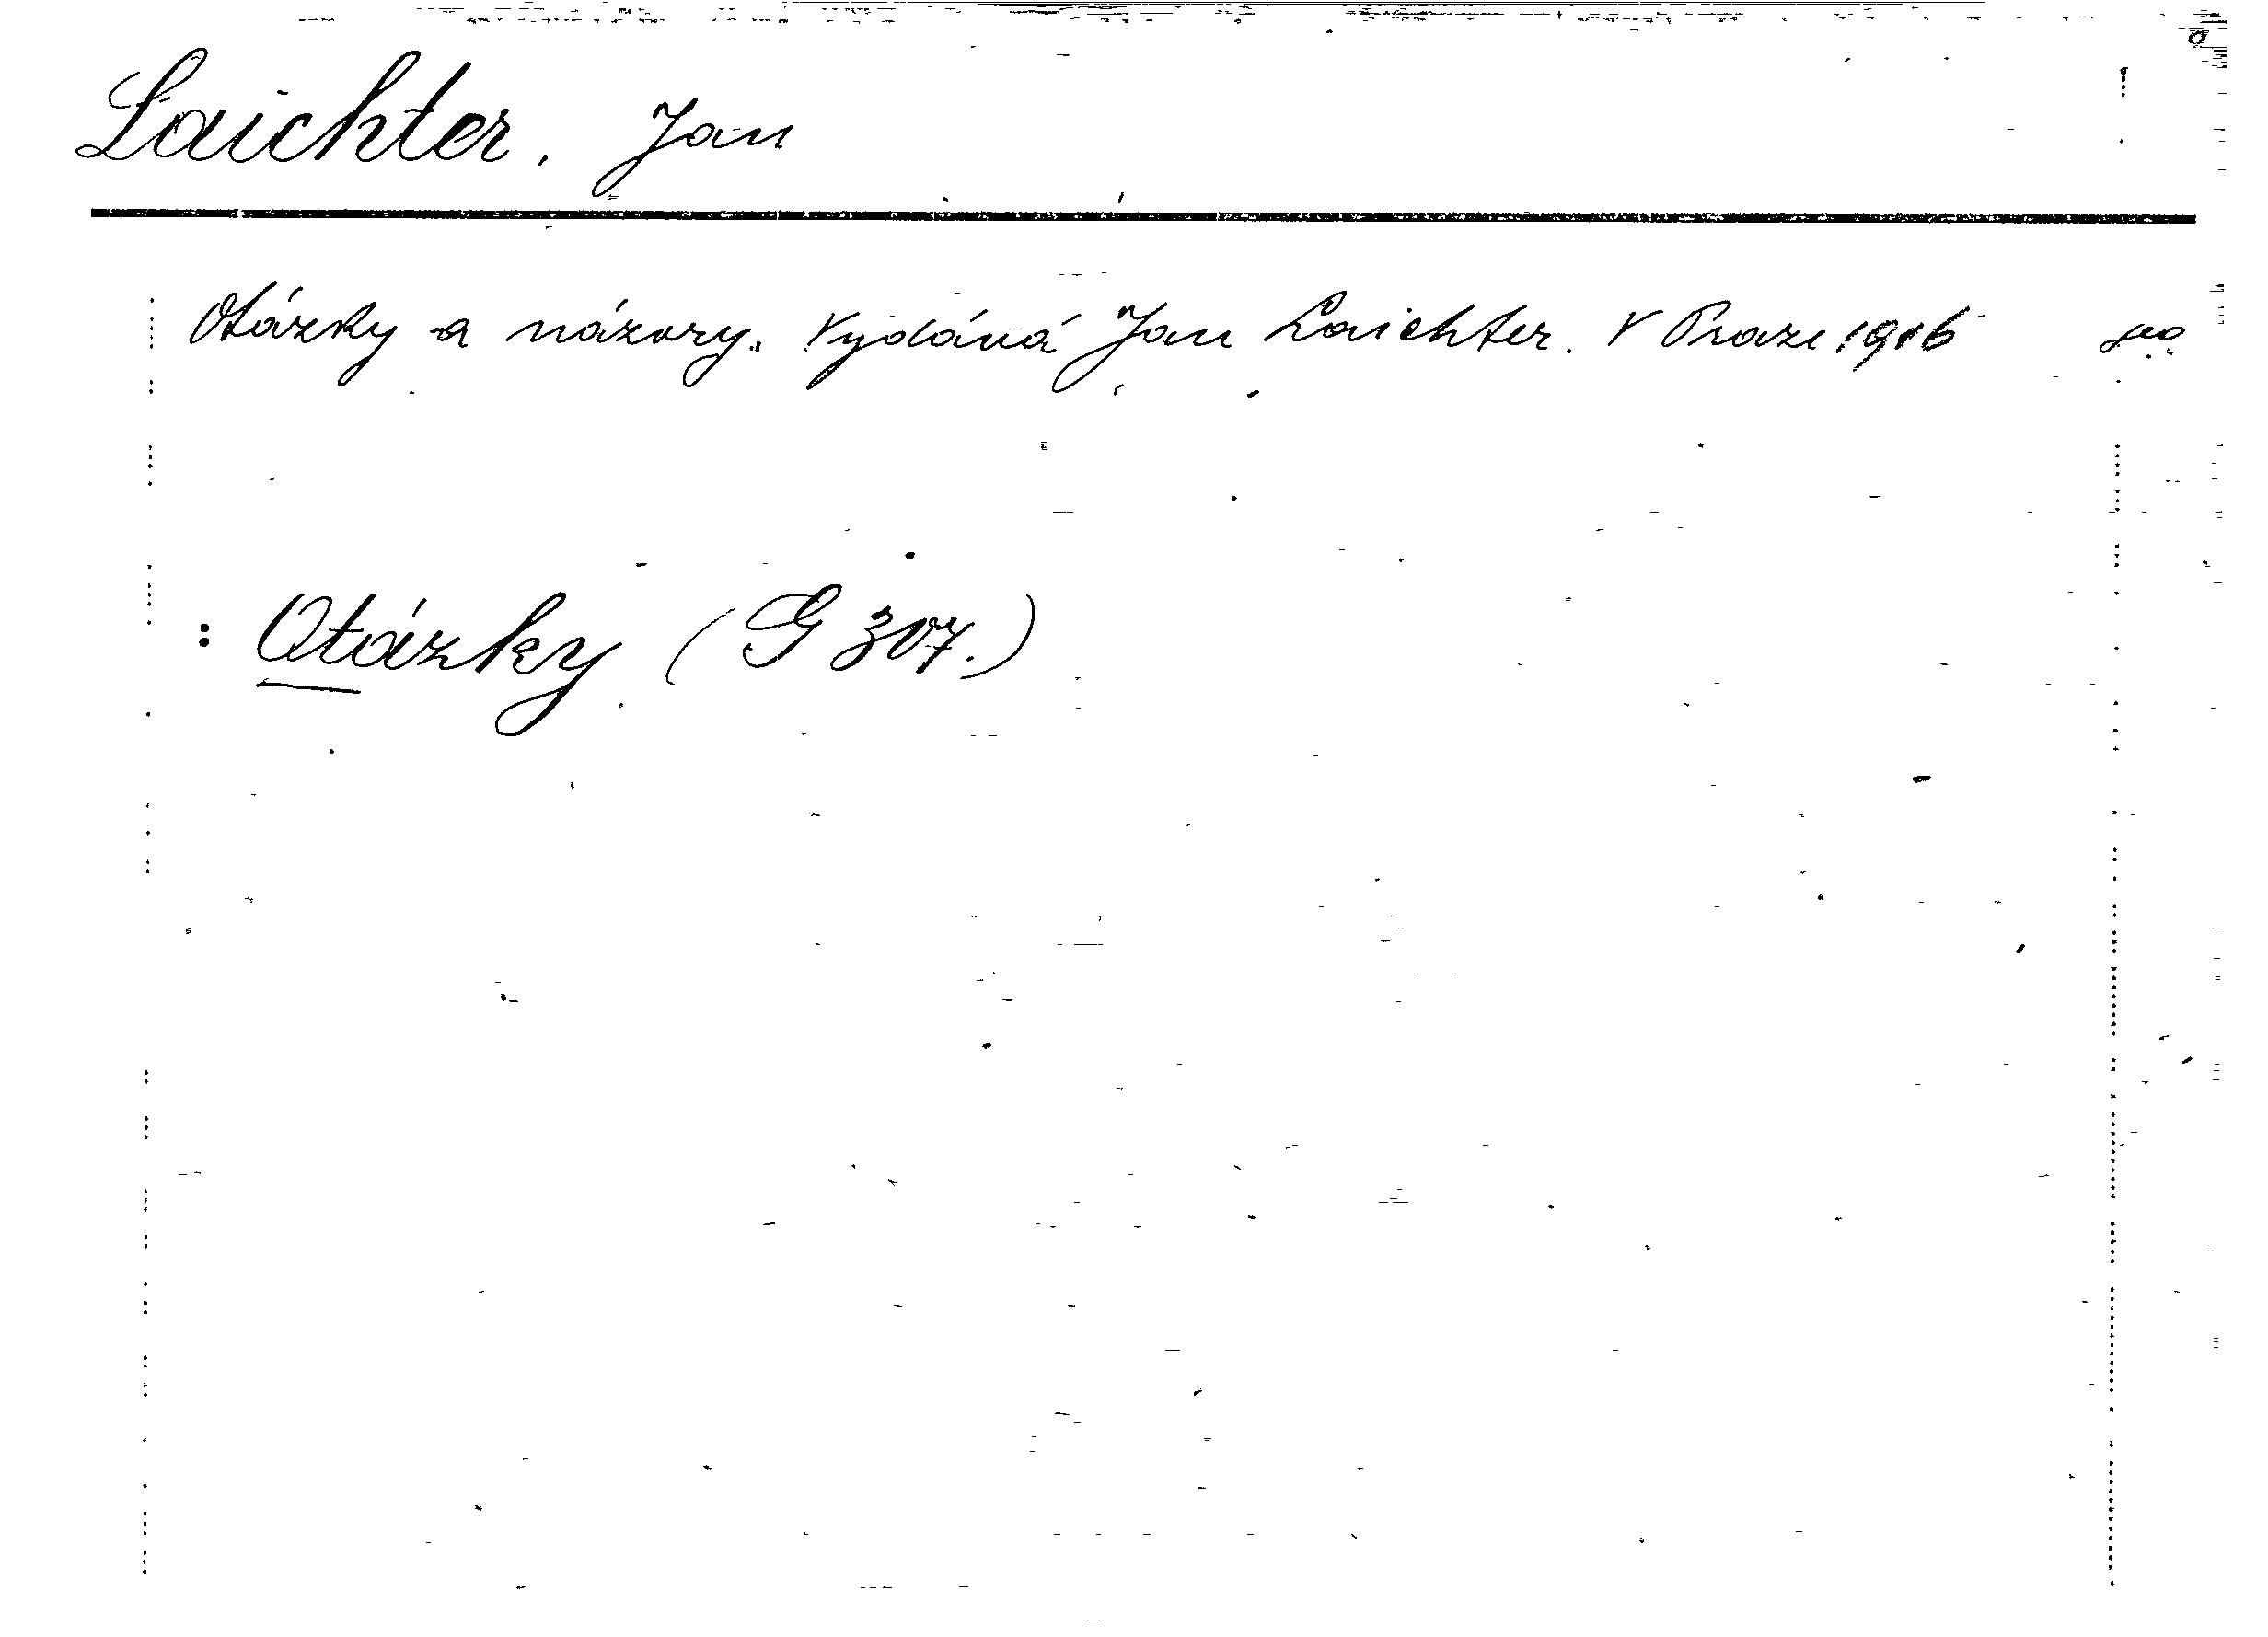 Laichter, Jan
Otázky a názory. Vydává Jan Laichter. V Praze 1916
: Otázky (G 307.)